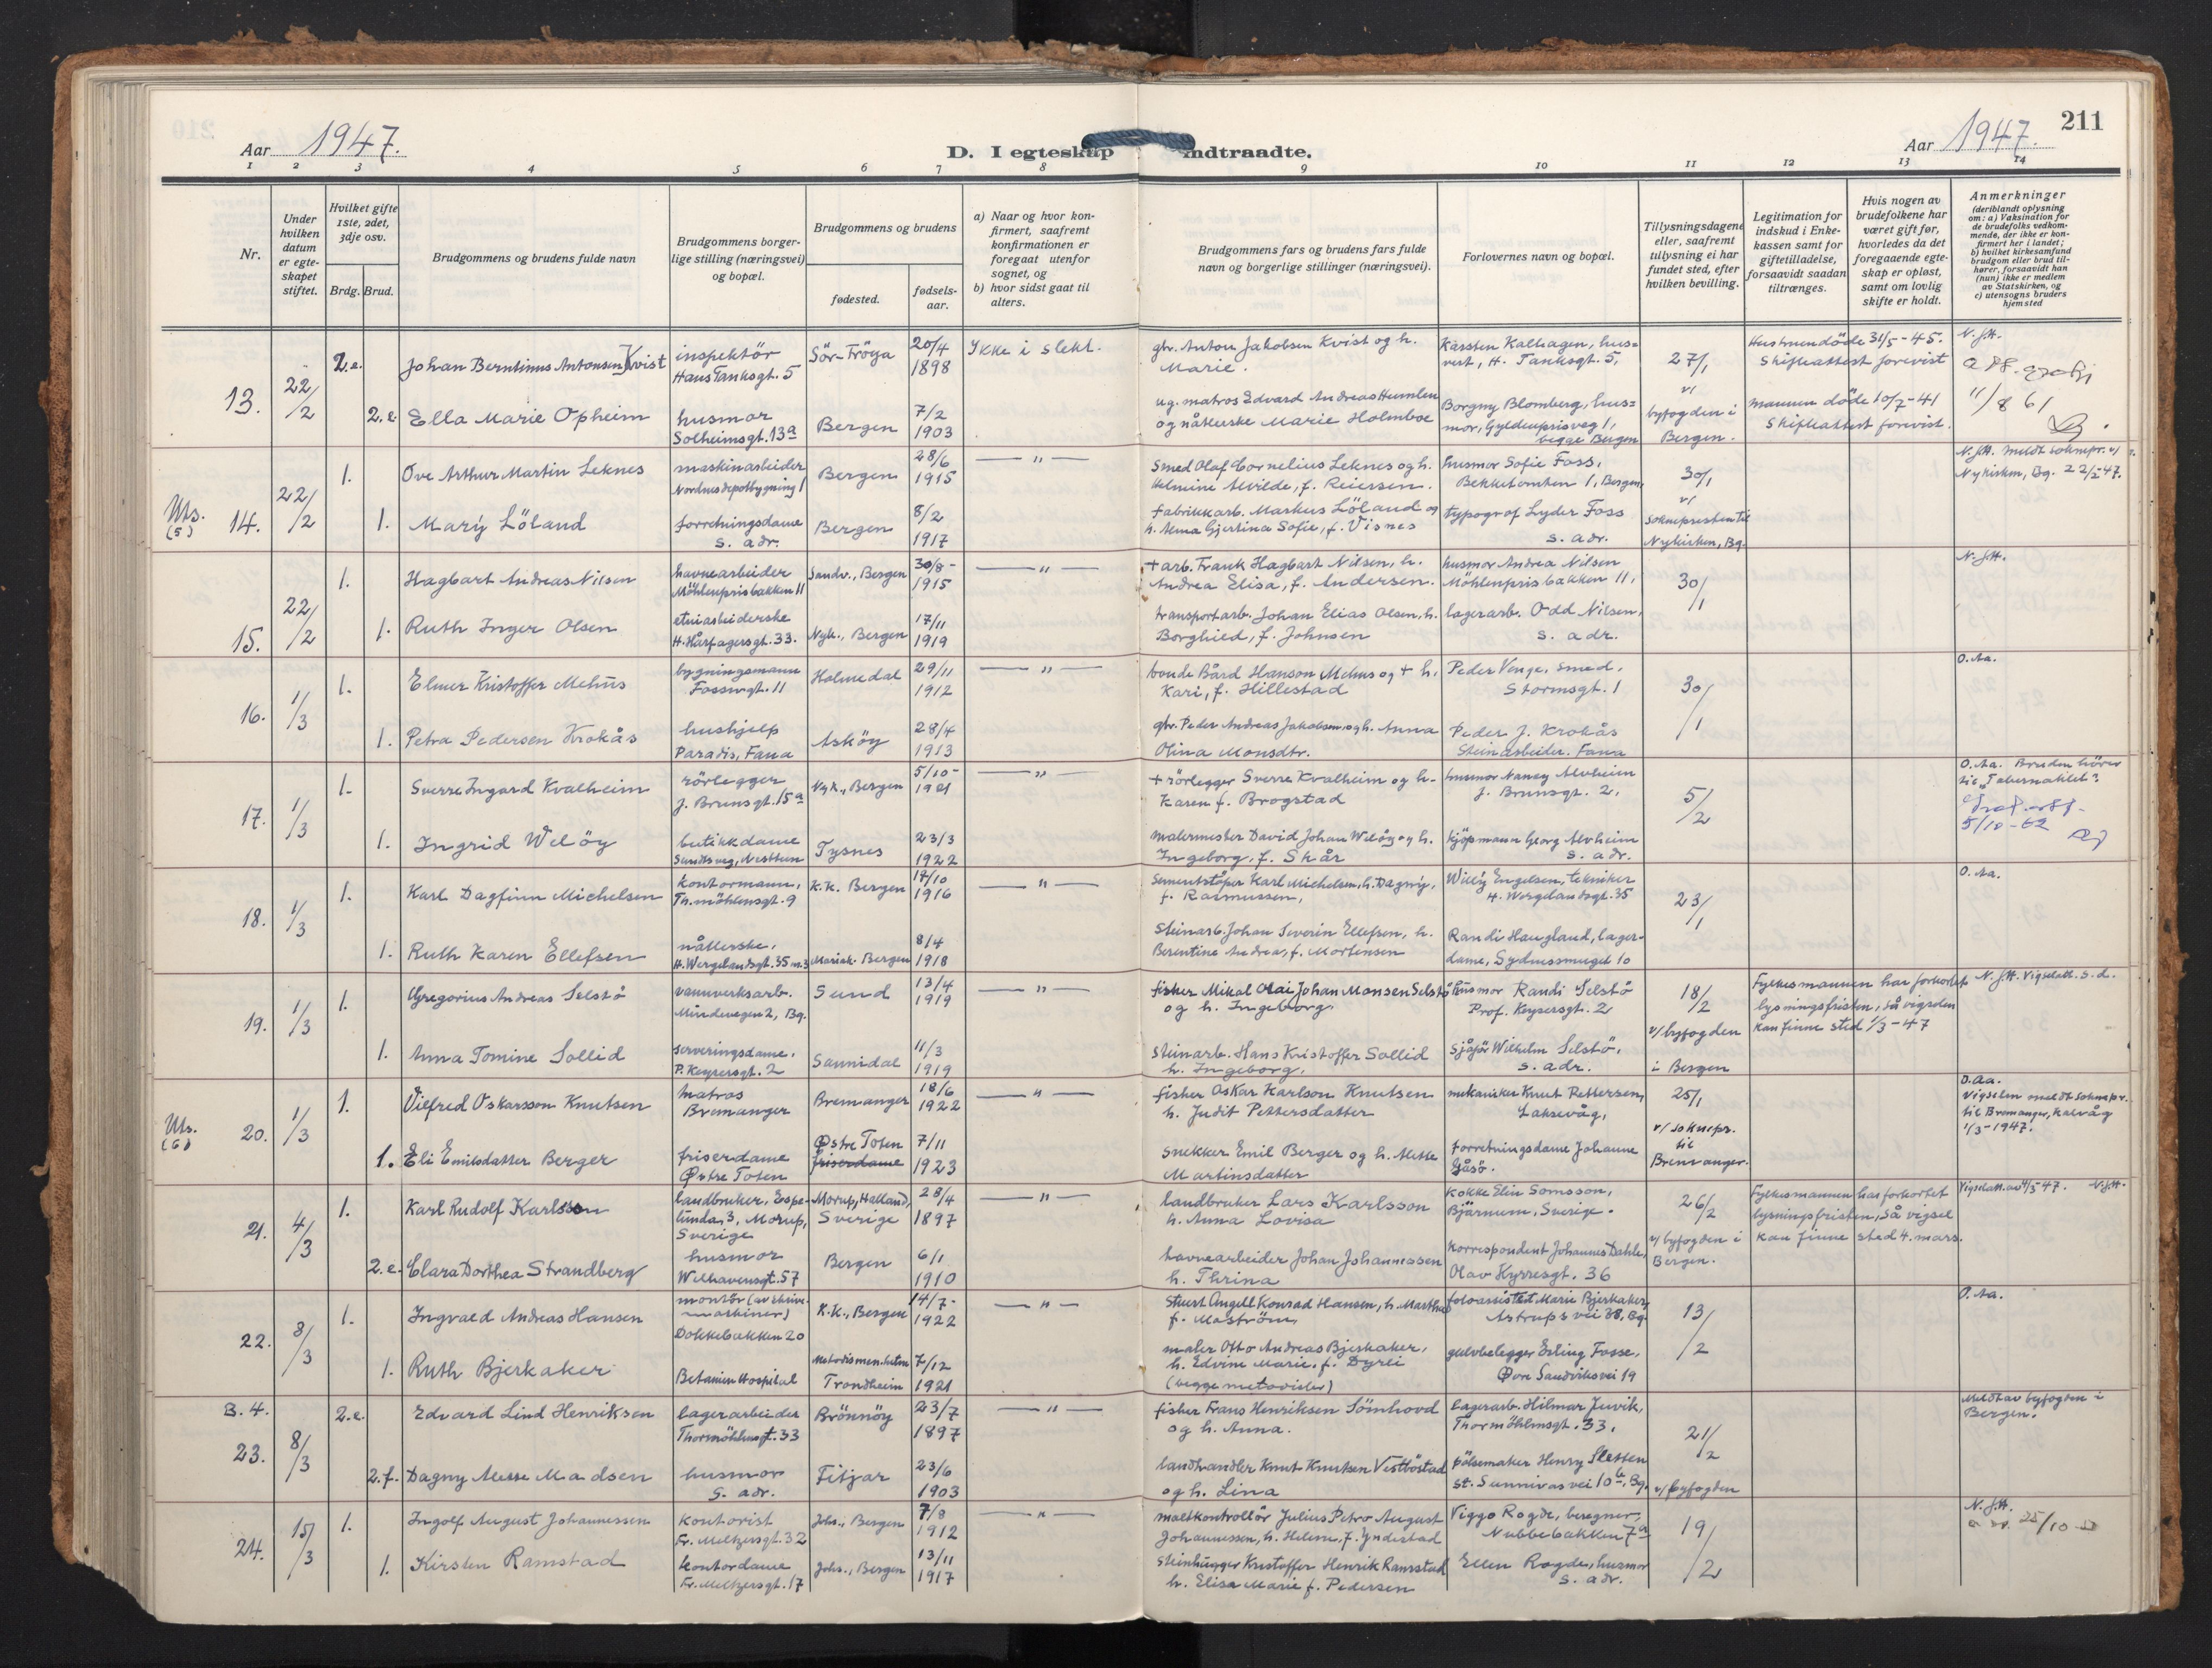 Aar 1947.
D. I egteskap indtraadte.
Aar 1947.
211
1 2 3 4 5 6 7 8 9 10 11 12 13 14
Nr.
Under hvilken datum er egteskapet stiftet.
Hvilket gifte 1ste, 2det, 3dje osv.
Brdg. Brud.
Brudgommens og brudens fulde navn
Brudgommens borgerlige stilling (næringsvei) og bopæl.
Brudgommens og brudens
fødested.
fødselsaar.
a) Naar og hvor konfirmert, saafremt konfirmationen er foregaat utenfor sognet, og
b) hvor sidst gaat til alters.
Brudgommens fars og brudens fars fulde navn og borgerlige stillinger (næringsvei).
Forlovernes navn og bopæl.
Tillysningsdagene eller, saafremt tillysning ei har fundet sted, efter hvilken bevilling.
Legitimation for indskud i Enkekassen samt for giftetilladelse, forsaavidt saadan tiltrænges.
Hvis nogen av brudefolkene har været gift før, hvorledes da det foregaaende egteskap er opløst, samt om lovlig skifte er holdt.
Anmerkninger
(deriblandt oplysning om: a) Vaksination for de brudefolks vedkommende, der ikke er konfirmert her i landet;
b) hvilket kirkesamfund brudgom eller brud tilhører, forsaavidt han (hun) ikke er medlem av Statskirken, og
c) utensogns bruders hjemsted
13. 22/2
2.e. Johan Berntinus Antonsen Kvist
inspektör Hans Tanksgt. 5
Sör-Fröya 20/4 1898
Ikke i slekt.
gbr. Anton Jakobsen Kvist og h. Marie.
Karsten Kalhagen, husvert, H. Tanksgt. 5,
27/1 v/ byfogden i Bergen.
Hustruen döde 31/5-45. Skifteattest forevist
N.J.H.
11/8 61
2.e. Ella Marie Opheim
husmor Solheimsgt. 13a
Bergen 7/2 1903
ug. matros Edvard Andreas Humlen og nåtlerske Marie Holmboe
Borgny Blomberg, husmor, Gyldenprisveg 1, begge Bergen
mannen döde 10/7-41 Skifteattest forevist.
Uts. (5) 14. 22/2
1. Ove Arthur Martin Leknes
maskinarbeider Nordnes depotbygning 1
Bergen 28/6 1915
— " —
Smed Olaf Cornelius Leknes og h. Helmine Alvilde, f. Reiersen.
husmor Sofie Foss, Bekketomten 1, Bergen
30/1 v/ soknepresten til Nykirken, Bg.
N.J.H. meldt soknepr. v/ Nykirken, Bg. 22/2-47.
1. Mary Löland
forretningsdame s. adr.
Bergen 8/2 1917
fabrikkarb. Markus Löland og h. Anna Gjertina Sofie, f. Visnes
typograf Lyder Foss s. adr.
15. 22/2
1. Hagbart Andreas Nilsen
havnearbeider Möhlenprisbakken 11
Sandv., Bergen 30/8- 1915
— " —
+ arb. Frank Hagbart Nilsen, h. Andrea Elisa, f. Andersen.
husmor Andrea Nilsen Möhlenprisbakken 11,
30/1
N.J.H.
1. Ruth Inger Olsen
etuiarbeiderske H. Hårfagersgt. 33.
Nyk., Bergen 17/11 1919
transportarb. Johan Elias Olsen, h. Borghild, f. Johnsen
lagerarb. Odd Nilsen, s. adr.
16. 1/3
1. Elmer Kristoffer Mehus
bygningsmann Fosswgt. 11
Holmedal 29/11 1912
— " —
bonde Bård Hanson Mehus og + h. Kari, f. Hillestad
Peder Venge, smed, Stormsgt. 1
30/1
O.Aa.
1. Petra Pedersen Krokås
hushjelp Paradis, Fana
Asköy 28/4 1913
gbr. Peder Andreas Jakobsen og h. Anna Olina Monsdtr.
Peder J. Krokås Steinarbeider. Fana
17. 1/3
1. Sverre Ingard Kvalheim
rörlegger J. Brunsgt. 15a
Nyk., Bergen 5/10- 1921
— " —
+ rörlegger Sverre Kvalheim og h. Karen f. Brogstad
husmor Nancy Alvheim J. Brunsgt. 2,
5/2
O.Aa. Bruden hörer til "Tabernaklet"?
5/10-62
1. Ingrid Welöy
butikkdame Sundtsveg, Nesttun
Tysnes 23/3 1922
malermester David Johan Welöy og h. Ingeborg, f. Skår
kjöpmann Georg Alvheim s. adr.
18. 1/3
1. Karl Dagfinn Michelsen
kontormann, Th. möhlensgt. 9
K.K. Bergen 17/10 1916
— " —
Sementstöper Karl Michelsen, h. Dagny, f. Rasmussen,
Willy Engelsen, tekniker H. Wergelandsgt. 35
23/1
O.Aa.
1. Ruth Karen Ellefsen
nåtlerske, H. Wergelandsgt. 35
Mariak. Bergen 8/4 1918
Steinarb. Johan Severin Ellefsen, h. Berentine Andrea, f. Mortensen
Randi Haugland, lagerdame, Sydnessmuget 10
19. 1/3
1. Gregorius Andreas Selstö
vannverksarb. Mindevegen 2, Bg.
Sund 13/4 1919
— " —
fisker Mikal Olai Johan Monsen Selstö og h. Ingeborg,
husmor Randi Selstö Prof. Keysersgt. 2
18/2 v/ byfogden i Bergen
Fylkesmannen har forkortet lysningsfristen, så vigslen kan finne sted 1/3-47
N.J.H. Vigselatt. s.d.
1. Anna Tomine Sollid
serveringsdame, P. Keysersgt. 2
Sannidal 11/3 1919
steinarb. Hans Kristoffer Sollid h. Ingeborg,
sjåför Wilhelm Selstö, s. adr.
Uts. (6) 20. 1/3
1. Vilfred Oskarsson Knutsen
matros Bremanger
Bremanger 18/6 1922
— " —
fisker Oskar Karlson Knutsen h. Judit Pettersdatter
mekaniker Knut Pettersen, Laksevåg,
25/1 v/ soknepr. til Bremanger.
O.Aa. Vigselen meldt soknepr. til Bremanger, Kalvåg 1/3-1947.
1. Eli Emilsdatter Berger
friserdame Østre Toten
Østre Toten friserdame 7/11 1923
snekker Emil Berger og h. Mette Martinsdatter
Forretningsdame Johanne Gåsö.
21. 4/3
1. Karl Rudolf Karlsson
landbruker, Espelunda, 3, Morup, Sverige
Morup, Halland, Sverige 28/4 1897
— " —
landbruker Lars Karlsson h. Anna Lovisa
kokke Elin Somsson, Bjärnum, Sverige.
26/2 v/ byfogden i Bergen.
Fylkesmannen har forkortet lysningsfristen, så vigsel kan finne sted 4. mars.
Vigselatt. av 4/3 47. N.J.H.
2.e. Clara Dorthea Strandberg
husmor Welhavensgt. 57
Bergen 6/1 1910
havnearbeider Johan Johannessen h. Thrina
korrespondent Johannes Dahle, Olav Kyrresgt. 36
22. 8/3
1. Ingvald Andreas Hansen
montör (av skrivemaskiner) Dokkebakken 20
K.K., Bergen 14/7- 1922
— " —
Stuert Angell Konrad Hansen, h. Marthe f. Moström,
fotoassistent Marie Bjerkaker, Astrups vei 38, Bg.
13/2
O.Aa.
1. Ruth Bjerkaker
Betanien Hospital
Metodismen. luten Trondheim 7/12 1921
maler Otto Andreas Bjerkaker, h. Edvine Marie, f. Dyrli (begge metodister)
gulvbelegger Erling Fosse, Øvre Sandviksvei 19
B. 4. 23. 8/3
2.e. Edvard Lind Henriksen
lagerarbeider Thormöhlensgt. 33
Brönnöy 23/7 1897
— " —
fisker Frans Henriksen Sömhovd og h. Anna.
lagerarb. Hilmar Juvik, Thormöhlensgt. 33,
21/2 v/ byfogden
Meldt av byfogden i Bergen.
2.f. Dagny Messe Madsen
husmor s. adr.
Fitjar 23/6 1903
landhandler Knut Knutsen Vestböstad og h. Lina
pölsemaker Henry Sletten St. Sunnivas vei 10b, Bg.
24. 15/3
1. Ingolf August Johannessen
kontorist Fr. Meltzersgt. 32
Johs., Bergen 7/8 1912
— " —
maltkontrollör Julius Petro August Johannessen, h. Helene, f. Yndestad
Viggo Rogde, beregner, Nubbebakken 7a
19/2
N.J.H.
25/10
1. Kirsten Ramstad
kontordame Fr. Meltzersgt. 17
Johs., Bergen 13/11 1917
Steinhugger Kristoffer Henrik Ramstad h. Elisa Marie f. Pedersen
Ellen Rogde, husmor s. adr.